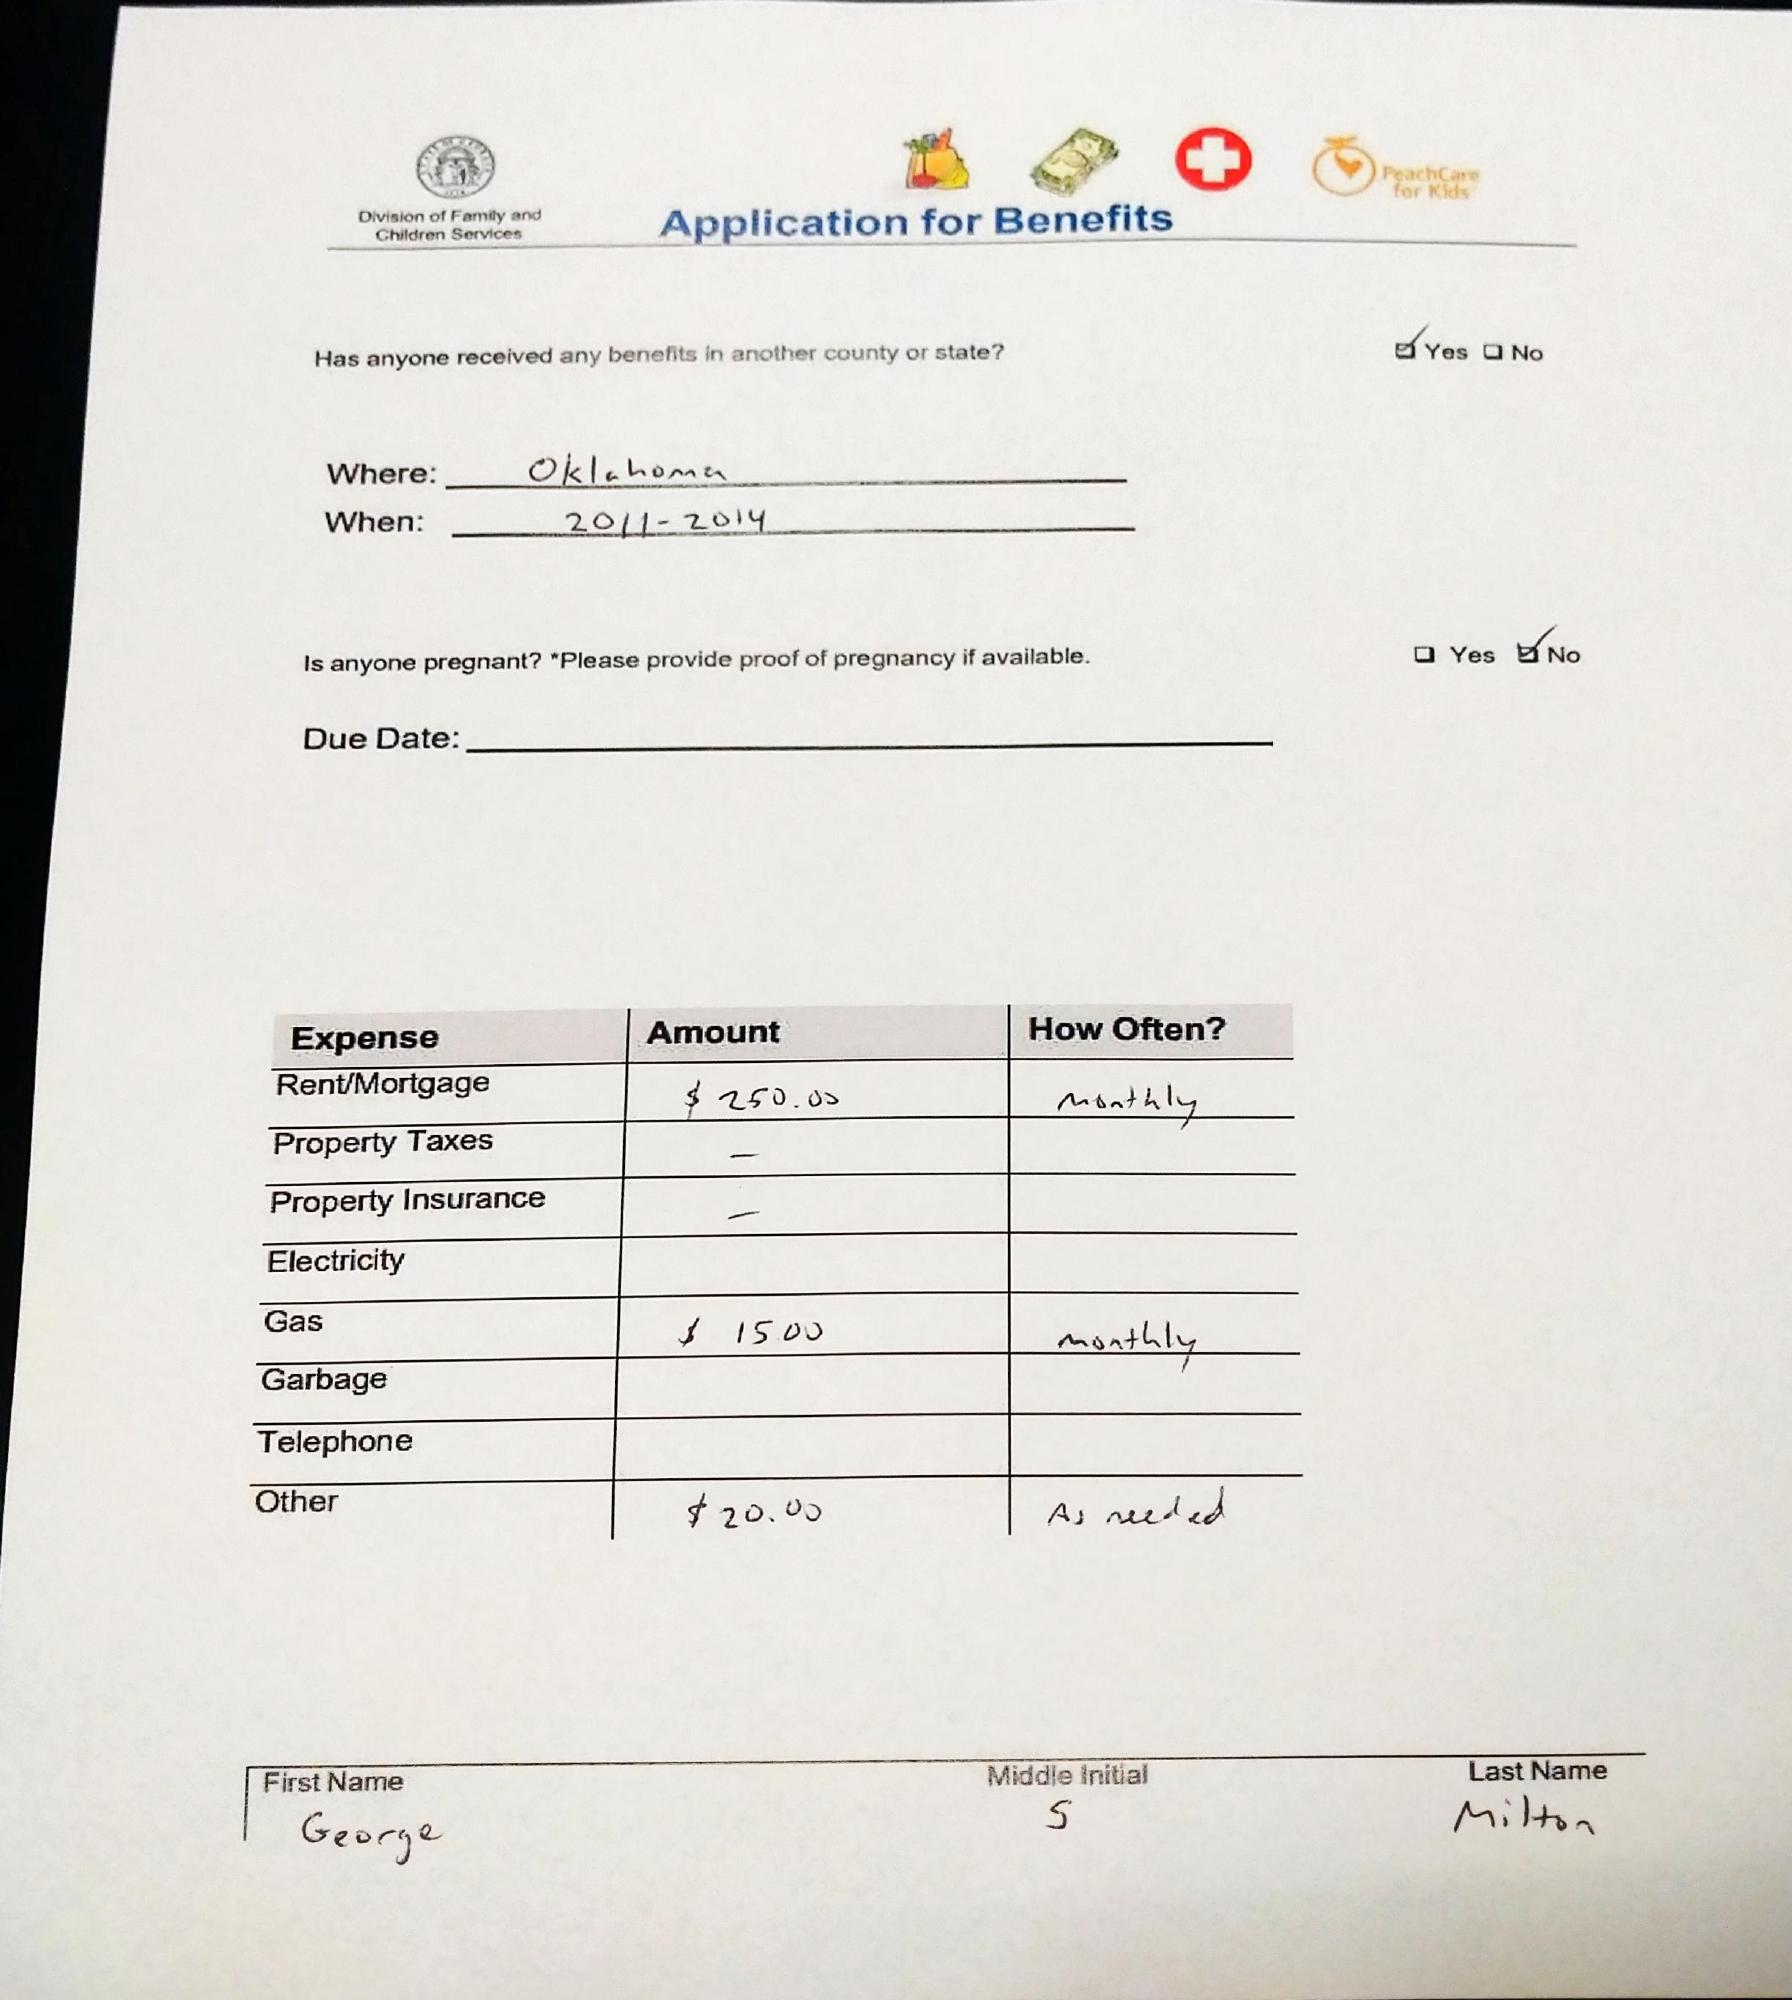 PeachCare
for Kids
Division of Family and
Children Services
Application for Benefits
Has anyone received any benefits in another county or state? Yes No
Where: Oklahoma
When: 2011-2014
Is anyone pregnant? *Please provide proof of pregnancy if available. Yes No
Due Date:
Expense Amount How Often?
Rent/Mortgage $ 250.00 monthly
Property Taxes –
Property Insurance –
Electricity
Gas $ 15.00 monthly
Garbage
Telephone
Other $ 20.00 As needed
First Name Middle Initial Last Name
George S Milton